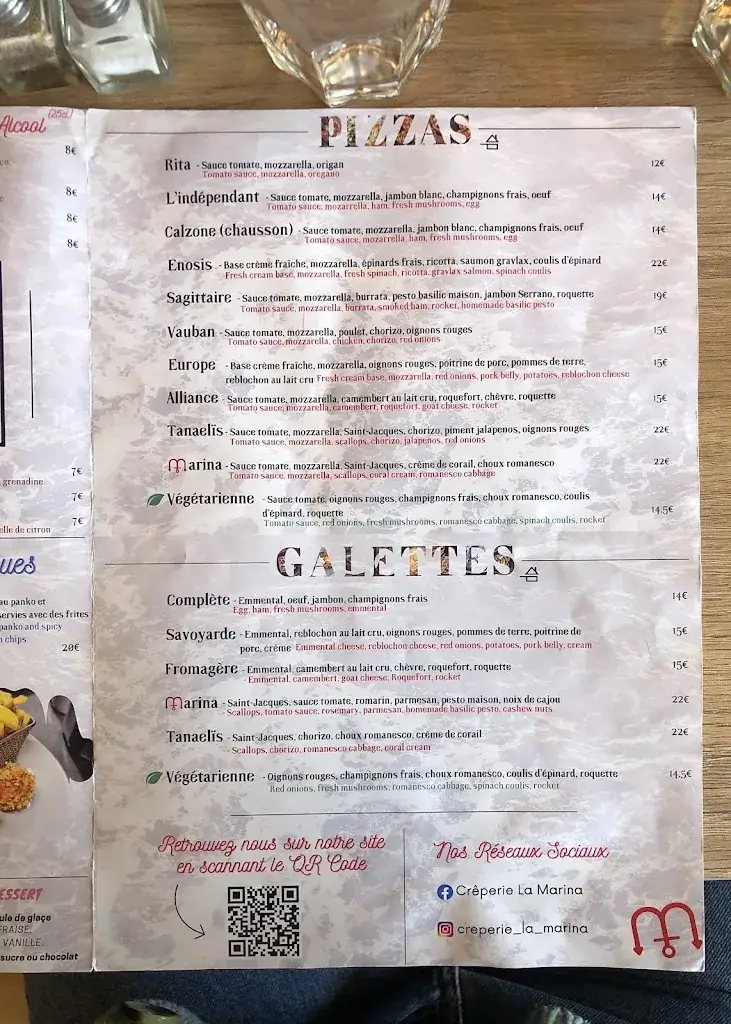 Alcool (25cl)
8€
8€
8€
8€
7€
grenadine
7€
7€
elle de citron
ues
au panko et
servies avec des frites
panko and spicy
chips
20€
ESSERT
ule de glaçe
FRAISE,
VANILLE...
sucre ou chocolat
PIZZAS
Rita - Sauce tomate, mozzarella, origan 12€
Tomato sauce, mozzarella, oregano
L'indépendant - Sauce tomate, mozzarella, jambon blanc, champignons frais, oeuf 14€
Tomato sauce, mozarrella, ham, fresh mushrooms, egg
Calzone (chausson) - Sauce tomate, mozzarella, jambon blanc, champignons frais, oeuf 14€
Tomato sauce, mozarrella, ham, fresh mushrooms, egg
Enosis - Base crème fraîche, mozzarella, épinards frais, ricotta, saumon gravlax, coulis d'épinard 22€
Fresh cream base, mozzarella, fresh spinach, ricotta, gravlax salmon, spinach coulis
Sagittaire - Sauce tomate, mozzarella, burrata, pesto basilic maison, jambon Serrano, roquette 19€
Tomato sauce, mozzarella, burrata, smoked ham, rocket, homemade basilic pesto
Vauban - Sauce tomate, mozzarella, poulet, chorizo, oignons rouges 15€
Tomato sauce, mozzarella, chicken, chorizo, red onions
Europe - Base crème fraiche, mozzarella, oignons rouges, poitrine de porc, pommes de terre, 15€
reblochon au lait cru Fresh cream base, mozzarella, red onions, pork belly, potatoes, reblochon cheese
Alliance - Sauce tomate, mozzarella, camembert au lait cru, roquefort, chèvre, roquette 15€
Tomato sauce, mozzarella, camembert, roquefort, goat cheese, rocket
Tanaelïs - Sauce tomate, mozzarella, Saint-Jacques, chorizo, piment jalapenos, oignons rouges 22€
Tomato sauce, mozzarella, scallops, chorizo, jalapenos, red onions
Marina - Sauce tomate, mozzarella, Saint-Jacques, crème de corail, choux romanesco 22€
Tomato sauce, mozzarella, scallops, coral cream, romanesco cabbage
Végétarienne - Sauce tomate, oignons rouges, champignons frais, choux romanesco, coulis
d'épinard, roquette 14.5€
Tomato sauce, red onions, fresh mushrooms, romanesco cabbage, spinach coulis, rocket
GALETTES
Complète - Emmental, oeuf, jambon, champignons frais 14€
Egg, ham, fresh mushrooms, emmental
Savoyarde - Emmental, reblochon au lait cru, oignons rouges, pommes de terre, poitrine de 15€
porc, crème Emmental cheese, reblochon cheese, red onions, potatoes, pork belly, cream
Fromagère - Emmental, camembert au lait cru, chèvre, roquefort, roquette 15€
Emmental, camembert, goat cheese, Roquefort, rocket
Marina - Saint-Jacques, sauce tomate, romarin, parmesan, pesto maison, noix de cajou 22€
Scallops, tomato sauce, rosemary, parmesan, homemade basilic pesto, cashew nuts
Tanaelïs - Saint-Jacques, chorizo, choux romanesco, crème de corail 22€
Scallops, chorizo, romanesco cabbage, coral cream
Végétarienne - Oignons rouges, champignons frais, choux romanesco, coulis d'épinard, roquette 14.5€
Red onions, fresh mushrooms, romanesco cabbage, spinach coulis, rocket
Retrouvez nous sur notre site
en scannant le QR Code
Nos Réseaux Sociaux
Crêperie La Marina
creperie_la_marina